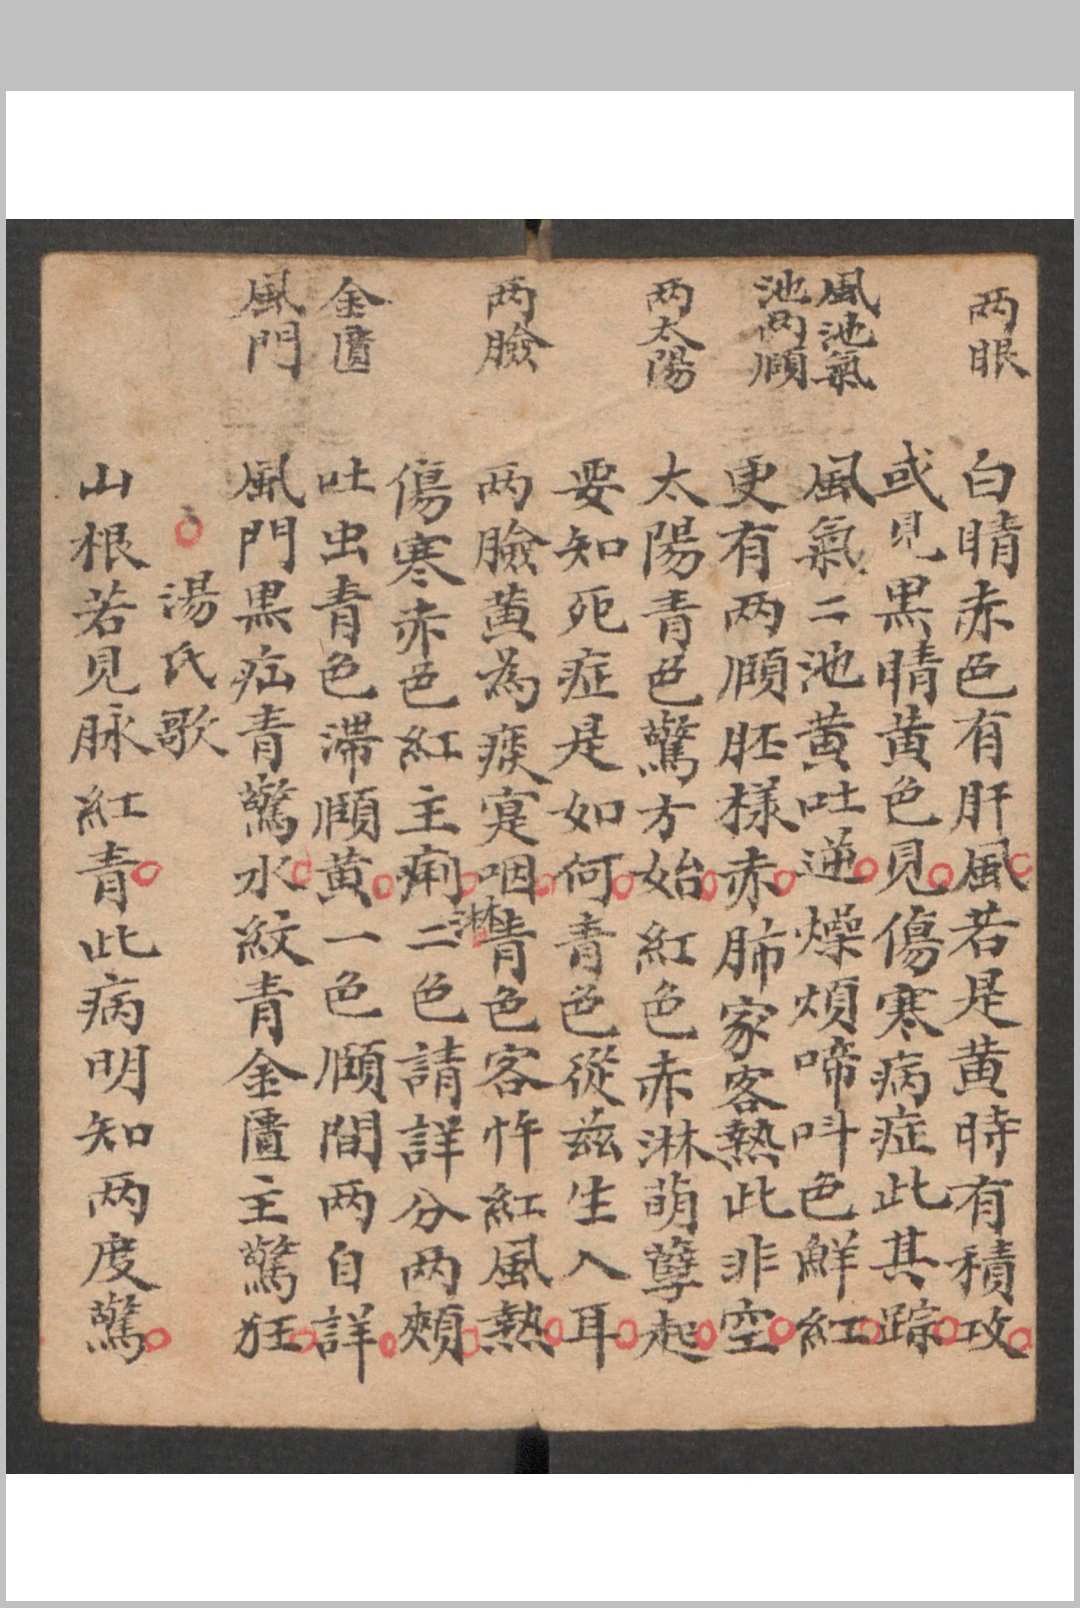 两眼
白睛赤色有肝風若是黄時有積攻
或見黒睛黄色見傷寒病症此其踪
風池氣
池两頥
風氣二池黄吐逆燥煩啼呌色鮮紅
更有两頥胚樣赤肺家客熱此非空
两太陽
太陽青色驚方始紅色赤淋萌孽起
要知死症是如何青色從兹生入耳
两臉
两臉黄為痰寔咽青色客忤紅風熱
傷寒赤色紅主痢淋二色請詳分两頰
金匱
吐虫青色滞頥黄一色頥間两自詳
風門
風門黒疝青驚水紋青金匱主驚狂
湯氏歌
山根若見脉紅青此病明知两度驚